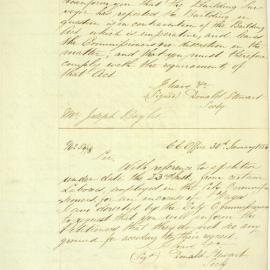 inform you that the Building Sur-
veyor has reported the Building in
question is in contravention of the Building
Act which is imperative, and leaves
the Commissioners no discretion in the
matter, and that you must therefore
comply with the requirements of
that Act.
I have &c
(Signed) Donald Stewart
Secty
Mr Joseph
C C Office 30th January
Sir
With reference to a petition
under date the 23rd Inst, from certain
Labourers employed in the City Commission
for an increase of Wages
I am directed by the City Commissioners
to request that you will inform the
Petitioners that they do not see any
ground for acceding to their request
I have &c
(Sgd) Donald Stewart
Secty